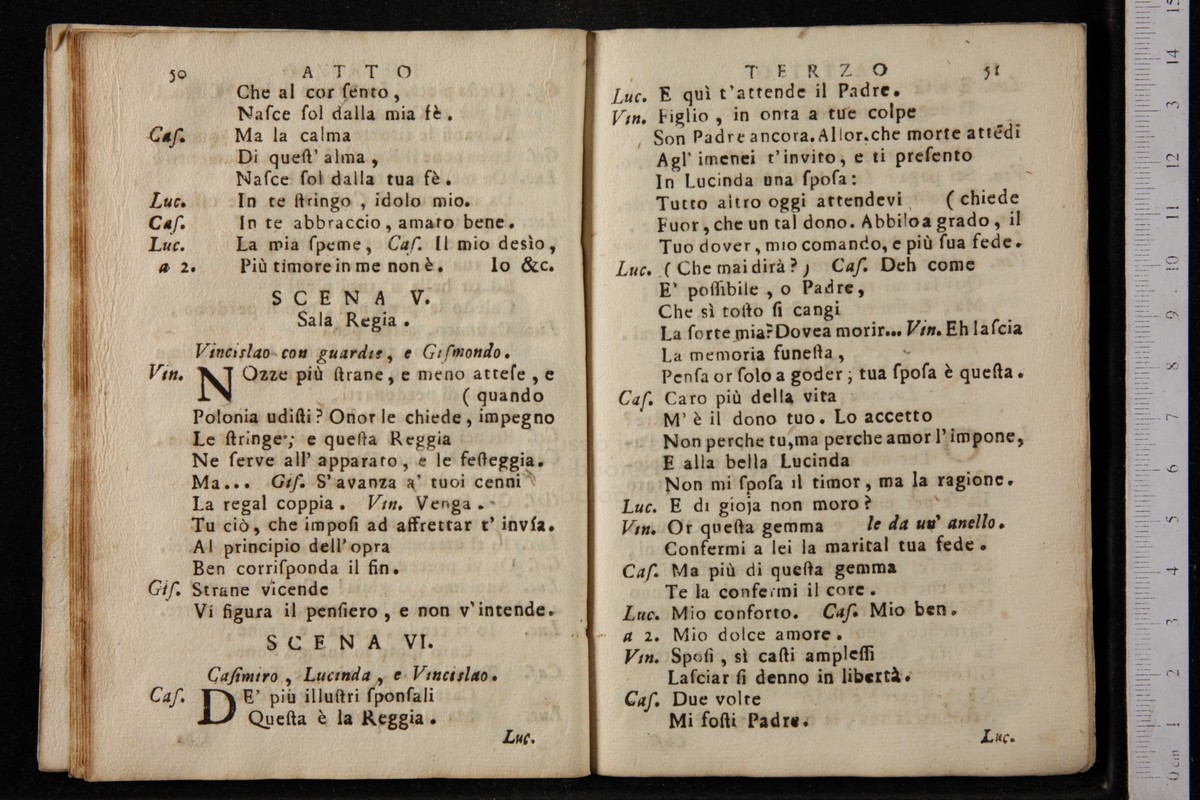 50 ATTO
Che al cor ſento,
Naſce ſol dalla mia fè.
Caſ. Ma la calma
Di queſt' alma,
Naſce ſol dalla tua fè.
Luc. In te ſtringo, idolo mio.
Caſ. In te abbraccio, amato bene.
Luc. La mia ſpeme, Caſ. Il mio desìo,
a 2. Più timore in me non è. Io &c.
SCENA V.
Sala Regia.
Vincislao con guardie, e Giſmondo.
Vin. NOzze più ſtrane, e meno atteſe, e
( quando
Polonia udiſti? Onor le chiede, impegno
Le ſtringe; e queſta Reggia
Ne ſerve all' apparato, e le feſteggia.
Ma... Giſ. S'avanza a' tuoi cenni
La regal coppia. Vin. Venga.
Tu ciò, che impoſi ad affrettar t' invía.
Al principio dell'opra
Ben corriſponda il fin.
Giſ. Strane vicende
Vi figura il penſiero, e non v'intende.
SCENA VI.
Caſimiro, Lucinda, e Vincislao.
Caſ. DE' più illuſtri ſponſali
Queſta è la Reggia.
Luc.
TERZO 51
Luc. E quì t'attende il Padre.
Vin. Figlio, in onta a tue colpe
Son Padre ancora. Allor, che morte attēdi
Agl' imenei t'invito, e ti preſento
In Lucinda una ſpoſa:
Tutto altro oggi attendevi ( chiede
Fuor, che un tal dono. Abbilo a grado, il
Tuo dover, mio comando, e più ſua fede.
Luc. ( Che mai dirà? ) Caſ. Deh come
E' poſſibile, o Padre,
Che sì toſto ſi cangi
La ſorte mia? Dovea morir... Vin. Eh laſcia
La memoria funeſta,
Penſa or ſolo a goder; tua ſpoſa è queſta.
Caſ. Caro più della vita
M' è il dono tuo. Lo accetto
Non perche tu, ma perche amor l'impone,
E alla bella Lucinda
Non mi ſpoſa il timor, ma la ragione.
Luc. E di gioja non moro?
Vin. Or queſta gemma le da un' anello.
Confermi a lei la marital tua fede.
Caſ. Ma più di queſta gemma
Te la confermi il core.
Luc. Mio conforto. Caſ. Mio ben.
a 2. Mio dolce amore.
Vin. Spoſi, sì caſti ampleſſi
Laſciar ſi denno in libertà.
Caſ. Due volte
Mi foſti Padre.
Luc.
0 cm 1 2 3 4 5 6 7 8 9 10 11 12 3 14 15